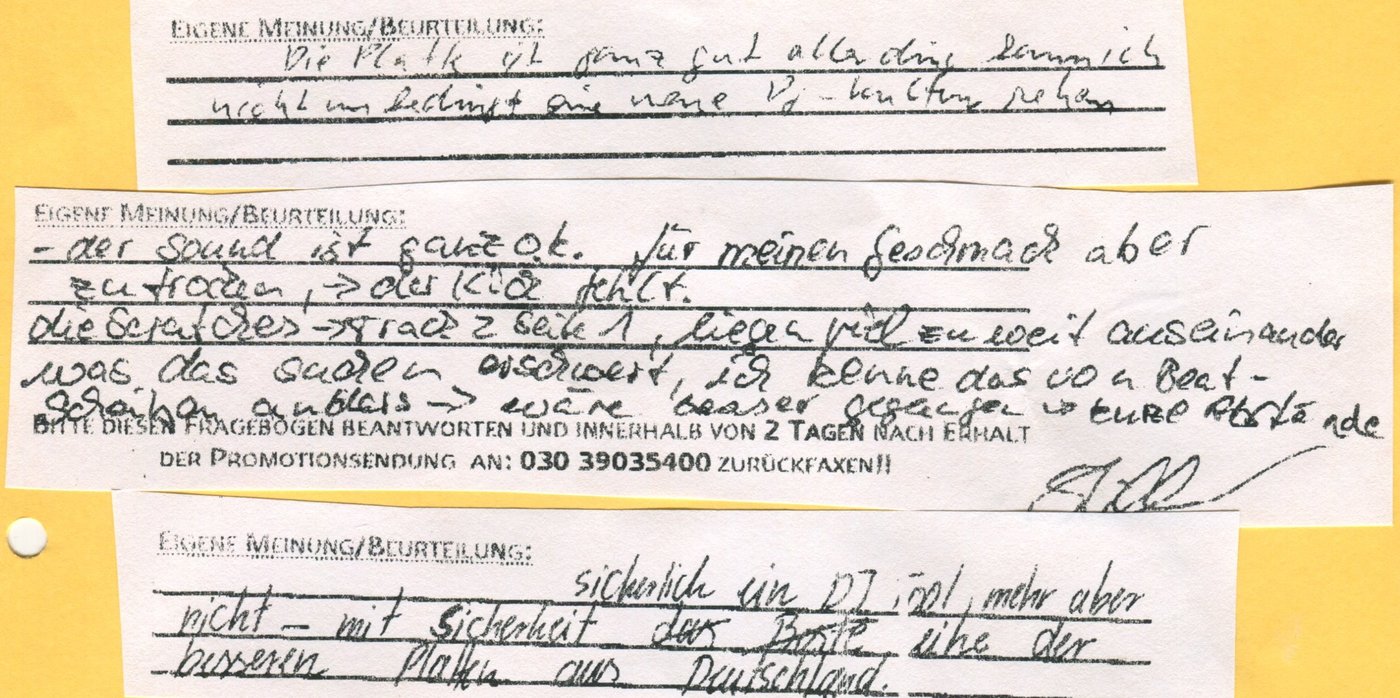 EIGENE MEINUNG/BEURTEILUNG:
Die Platte ist ganz gut allerding kann ich
nicht unbedingt eine neue DJ-Kultur sehen
EIGENE MEINUNG/BEURTEILUNG:
- der Sound ist ganz o.k. für meinen Geschmack aber
zu trocken, → der Kick fehlt.
die Scratches → Track 2 Seite 1, liegen viel zu weit auseinander
was das suchen erschwert, ich kenne das von Beat-
scheiben anders → wäre besser gegangen kurze Abstände
BITTE DIESEN FRAGEBOGEN BEANTWORTEN UND INNERHALB VON 2 TAGEN NACH ERHALT
DER PROMOTIONSENDUNG AN: 030 39035400 ZURÜCKFAXEN!!
EIGENE MEINUNG/BEURTEILUNG:
sicherlich ein DJ Tool, mehr aber
nicht – mit Sicherheit eine der
besseren Platten aus Deutschland.